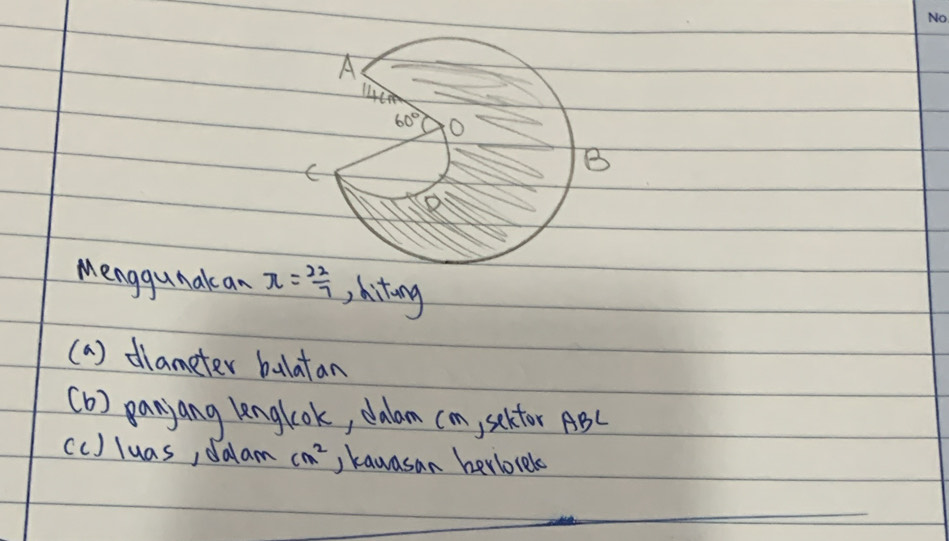 No.
A
14cm
60°
O
B
C
D
Menggunakan π = 22/7, hitung
(a) diameter bulatan
(b) panjang lengkok, dalam cm, sektor ABC
(c) luas, dalam cm², kawasan berlorek